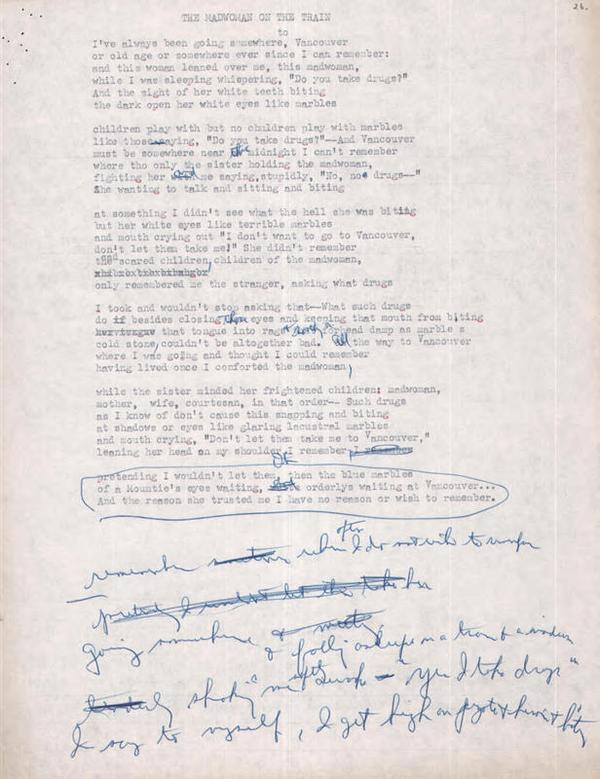 26.
THE MADWOMAN ON THE TRAIN
to
I've always been going somewhere, Vancouver
or old age or somewhere ever since I can remember:
and this woman leaned over me, this madwoman,
while I was sleeping whispering, "Do you take drugs?"
And the sight of her white teeth biting
the dark open her white eyes like marbles
children play with but no children play with marbles
like those saying, "Do you take drugs?"--And Vancouver
must be somewhere near the midnight I can't remember
where tho only the sister holding the madwoman,
fighting her and me saying stupidly, "No, no drugs--"
She wanting to talk and sitting and biting
at something I didn't see what the hell she was biting
but her white eyes like terrible marbles
and mouth crying out "I don't want to go to Vancouver,
don't let them take me!" She didn't remember
the scared children, children of the madwoman,
only remembered me the stranger, asking what drugs
I took and wouldn't stop asking that--What such drugs
do if besides closing those eyes and keeping that mouth from biting
her tongue that tongue into rags & forhead damp as marble s
cold stone, couldn't be altogether bad. All the way to Vancouver
where I was going and thought I could remember
having lived once I comforted the madwoman,
while the sister minded her frightened children: madwoman,
mother, wife, courtesan, in that order-- Such drugs
as I know of don't cause this snapping and biting
at shadows or eyes like glaring lacustral marbles
and mouth crying, "Don't let them take me to Vancouver,"
leaning her head on my shoulder I remember I remember
pretending I wouldn't let them, then the blue marbles
of a Mountie's eyes waiting, orderlys waiting at Vancouver...
And the reason she trusted me I have no reason or wish to remember.
often
remember when I do not wish to
pretend I wouldn't let them take her
going somewhere & asleep on a train
me awake — "yes I take drugs"
I say to myself, I get high on &